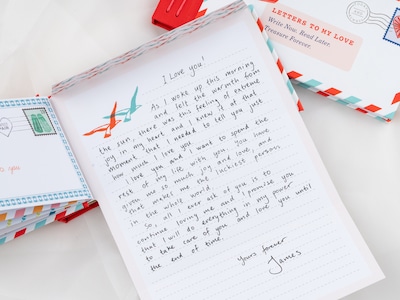 LETTERS TO MY LOVE
Write Now. Read Later.
Treasure Forever.
I love you!
As I woke up this morning
and felt the warmth from
the sun, there was this feeling of extreme
joy in my heart and I knew it at that
moment that I needed to tell you just
how much I love you.
I love you and want to spend the
rest of my life with you. You have
given me so much joy and love, and
that makes me the luckiest person
in the whole world.
So, all I ever ask of you is to
continue loving me and I promise you
that I will do everything in my power
to take care of you and love you until
the end of time.
Yours forever
James